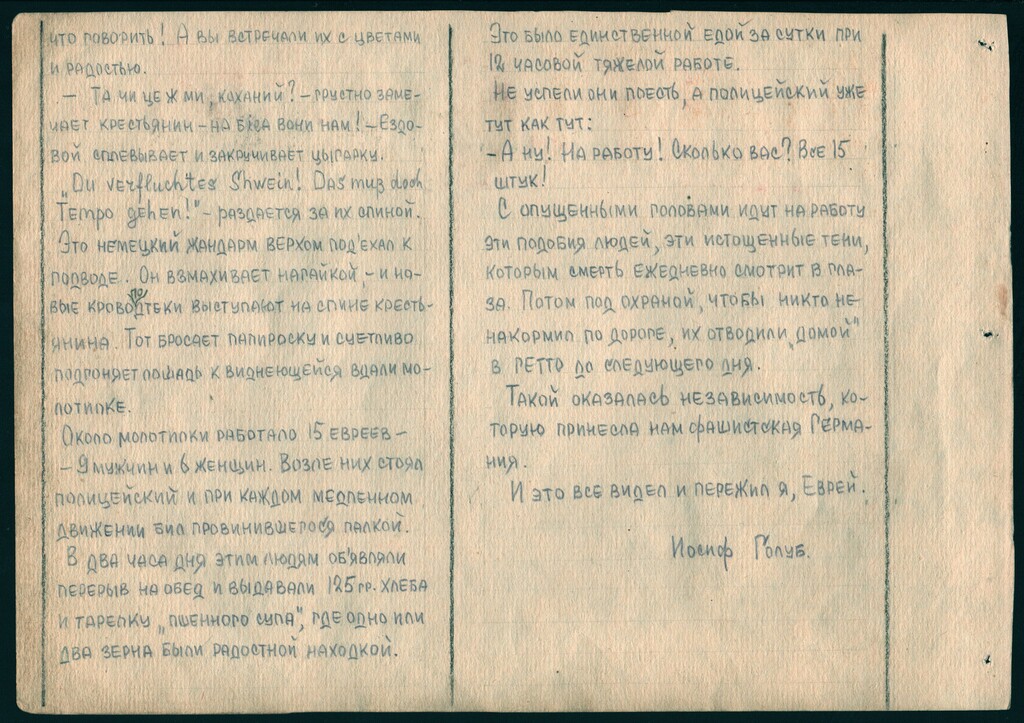 что говорить! А вы встречали их с цветами
и радостью.
— Та чи це ж ми, коханий? – грустно заме-
чает крестьянин – на біса вони нам! – Ездо-
вой сплевывает и закручивает цыгарку.
„Du verfluchtes Shwein! Das muß doch
Tempo gehen!" – раздается за их спиной.
Это немецкий жандарм верхом под'ехал к
подводе. Он взмахивает нагайкой, – и но-
вые кровоподтеки выступают на спине кресть-
янина. Тот бросает папироску и суетливо
подгоняет лошадь к виднеющейся вдали мо-
лотилке.
Около молотилки работало 15 евреев –
– 9 мужчин и 6 женщин. Возле них стоял
полицейский и при каждом медленном
движении бил провинившегося палкой.
В два часа дня этим людям об'являли
перерыв на обед и выдавали 125 гр. хлеба
и тарелку „пшенного супа", где одно или
два зерна были радостной находкой.
Это было единственной едой за сутки при
12 часовой тяжелой работе.
Не успели они поесть, а полицейский уже
тут как тут:
– А ну! На работу! Сколько вас? Все 15
штук!
С опущенными головами идут на работу
эти подобия людей, эти истощенные тени,
которым смерть ежедневно смотрит в гла-
за. Потом под охраной, чтобы никто не
накормил по дороге, их отводили „домой"
в гетто до следующего дня.
Такой оказалась независимость, ко-
торую принесла нам фашистская Герма-
ния.
И это все видел и пережил я, Еврей.
Иосиф Голуб.